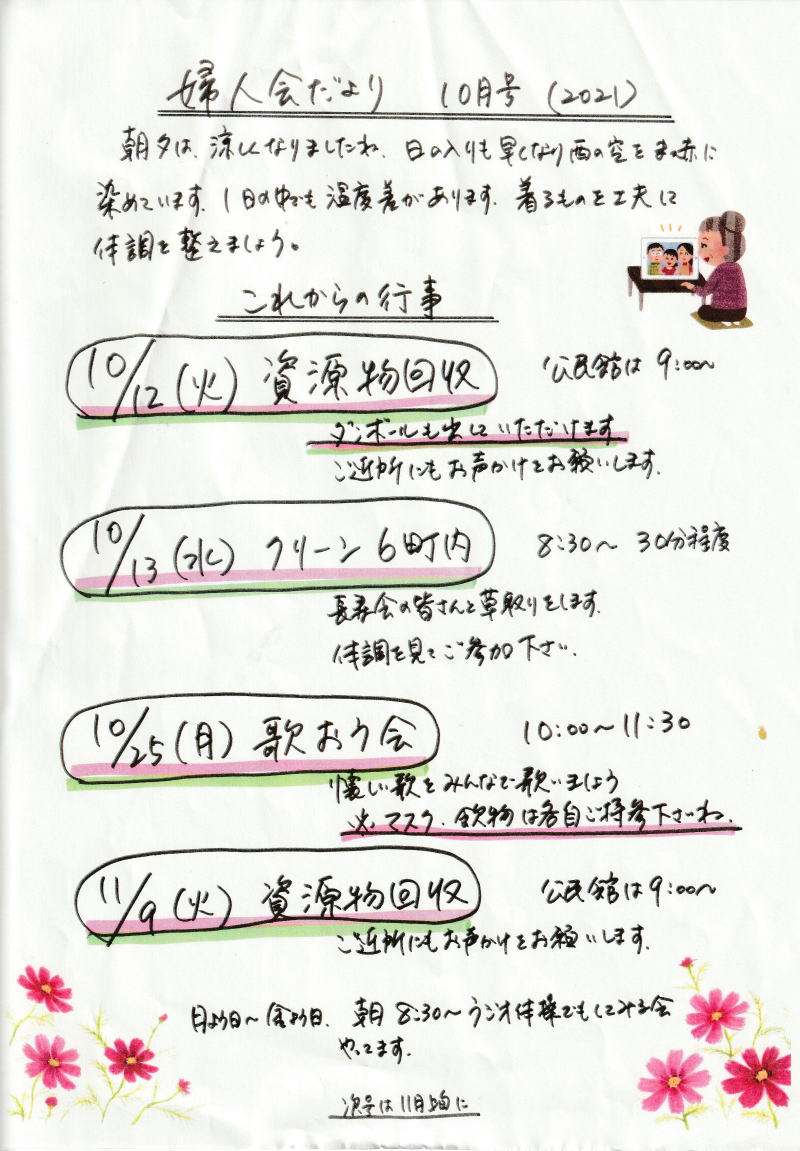 婦人会だより 10月号 (2021)
朝夕は、涼しくなりましたね、日の入りも早くなり西の空をまっ赤に
染めています。1日の中でも温度差があります。着るものを工夫して
体調を整えましょう。
これからの行事
10/12(火) 資源物回収 公民館は 9:00〜
ダンボールも出していただけます
ご近所にもお声かけをお願いします。
10/13(水) クリーン6町内 8:30〜 30分程度
長寿会の皆さんと草取りをします。
体調を見てご参加下さい。
10/25(月) 歌おう会 10:00〜11:30
懐しい歌をみんなで歌いましょう
※マスク、飲物は各自ご持参下さいね。
11/9(火) 資源物回収 公民館は9:00〜
ご近所にもお声かけをお願いします。
月よう日〜金よう日、朝 8:30〜ラジオ体操でもしてみる会
やってます。
次号は11月上旬に